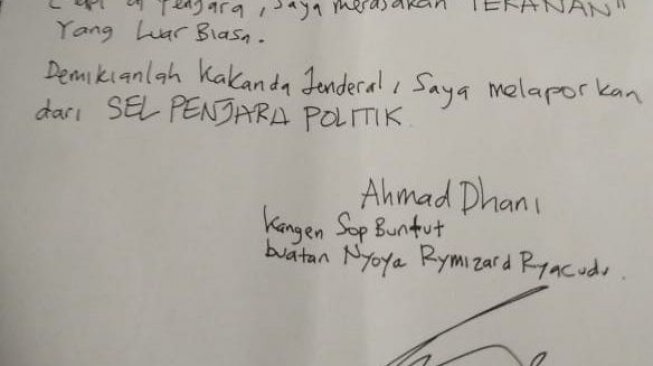 di Penjara, saya merasakan TEKANAN"
Yang Luar Biasa.
Demikianlah Kakanda Jenderal, Saya melaporkan
dari SEL PENJARA POLITIK
Ahmad Dhani
Kangen Sop Buntut
buatan Nyoya Rymizard Ryacudu.